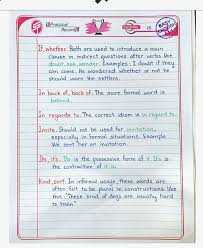 Personal Record
If, whether. Both are used to introduce a noun
clause in indirect questions after verbs like
doubt, ask, wonder. Examples: I doubt if they
can come. He wondered whether or not he
should warn the settlers.
In back of, back of. The more formal word is
behind.
In regards to. The correct idiom is in regard to.
Invite. Should not be used for invitation,
especially in formal situations. Example:
We sent her an invitation.
Its, it's. Its is the possessive form of it. It's is
the contraction of it is.
Kind, sort. In informal usage, these words are
often felt to be plural in constructions like
this: "These kind of dogs are usually hard
to train."